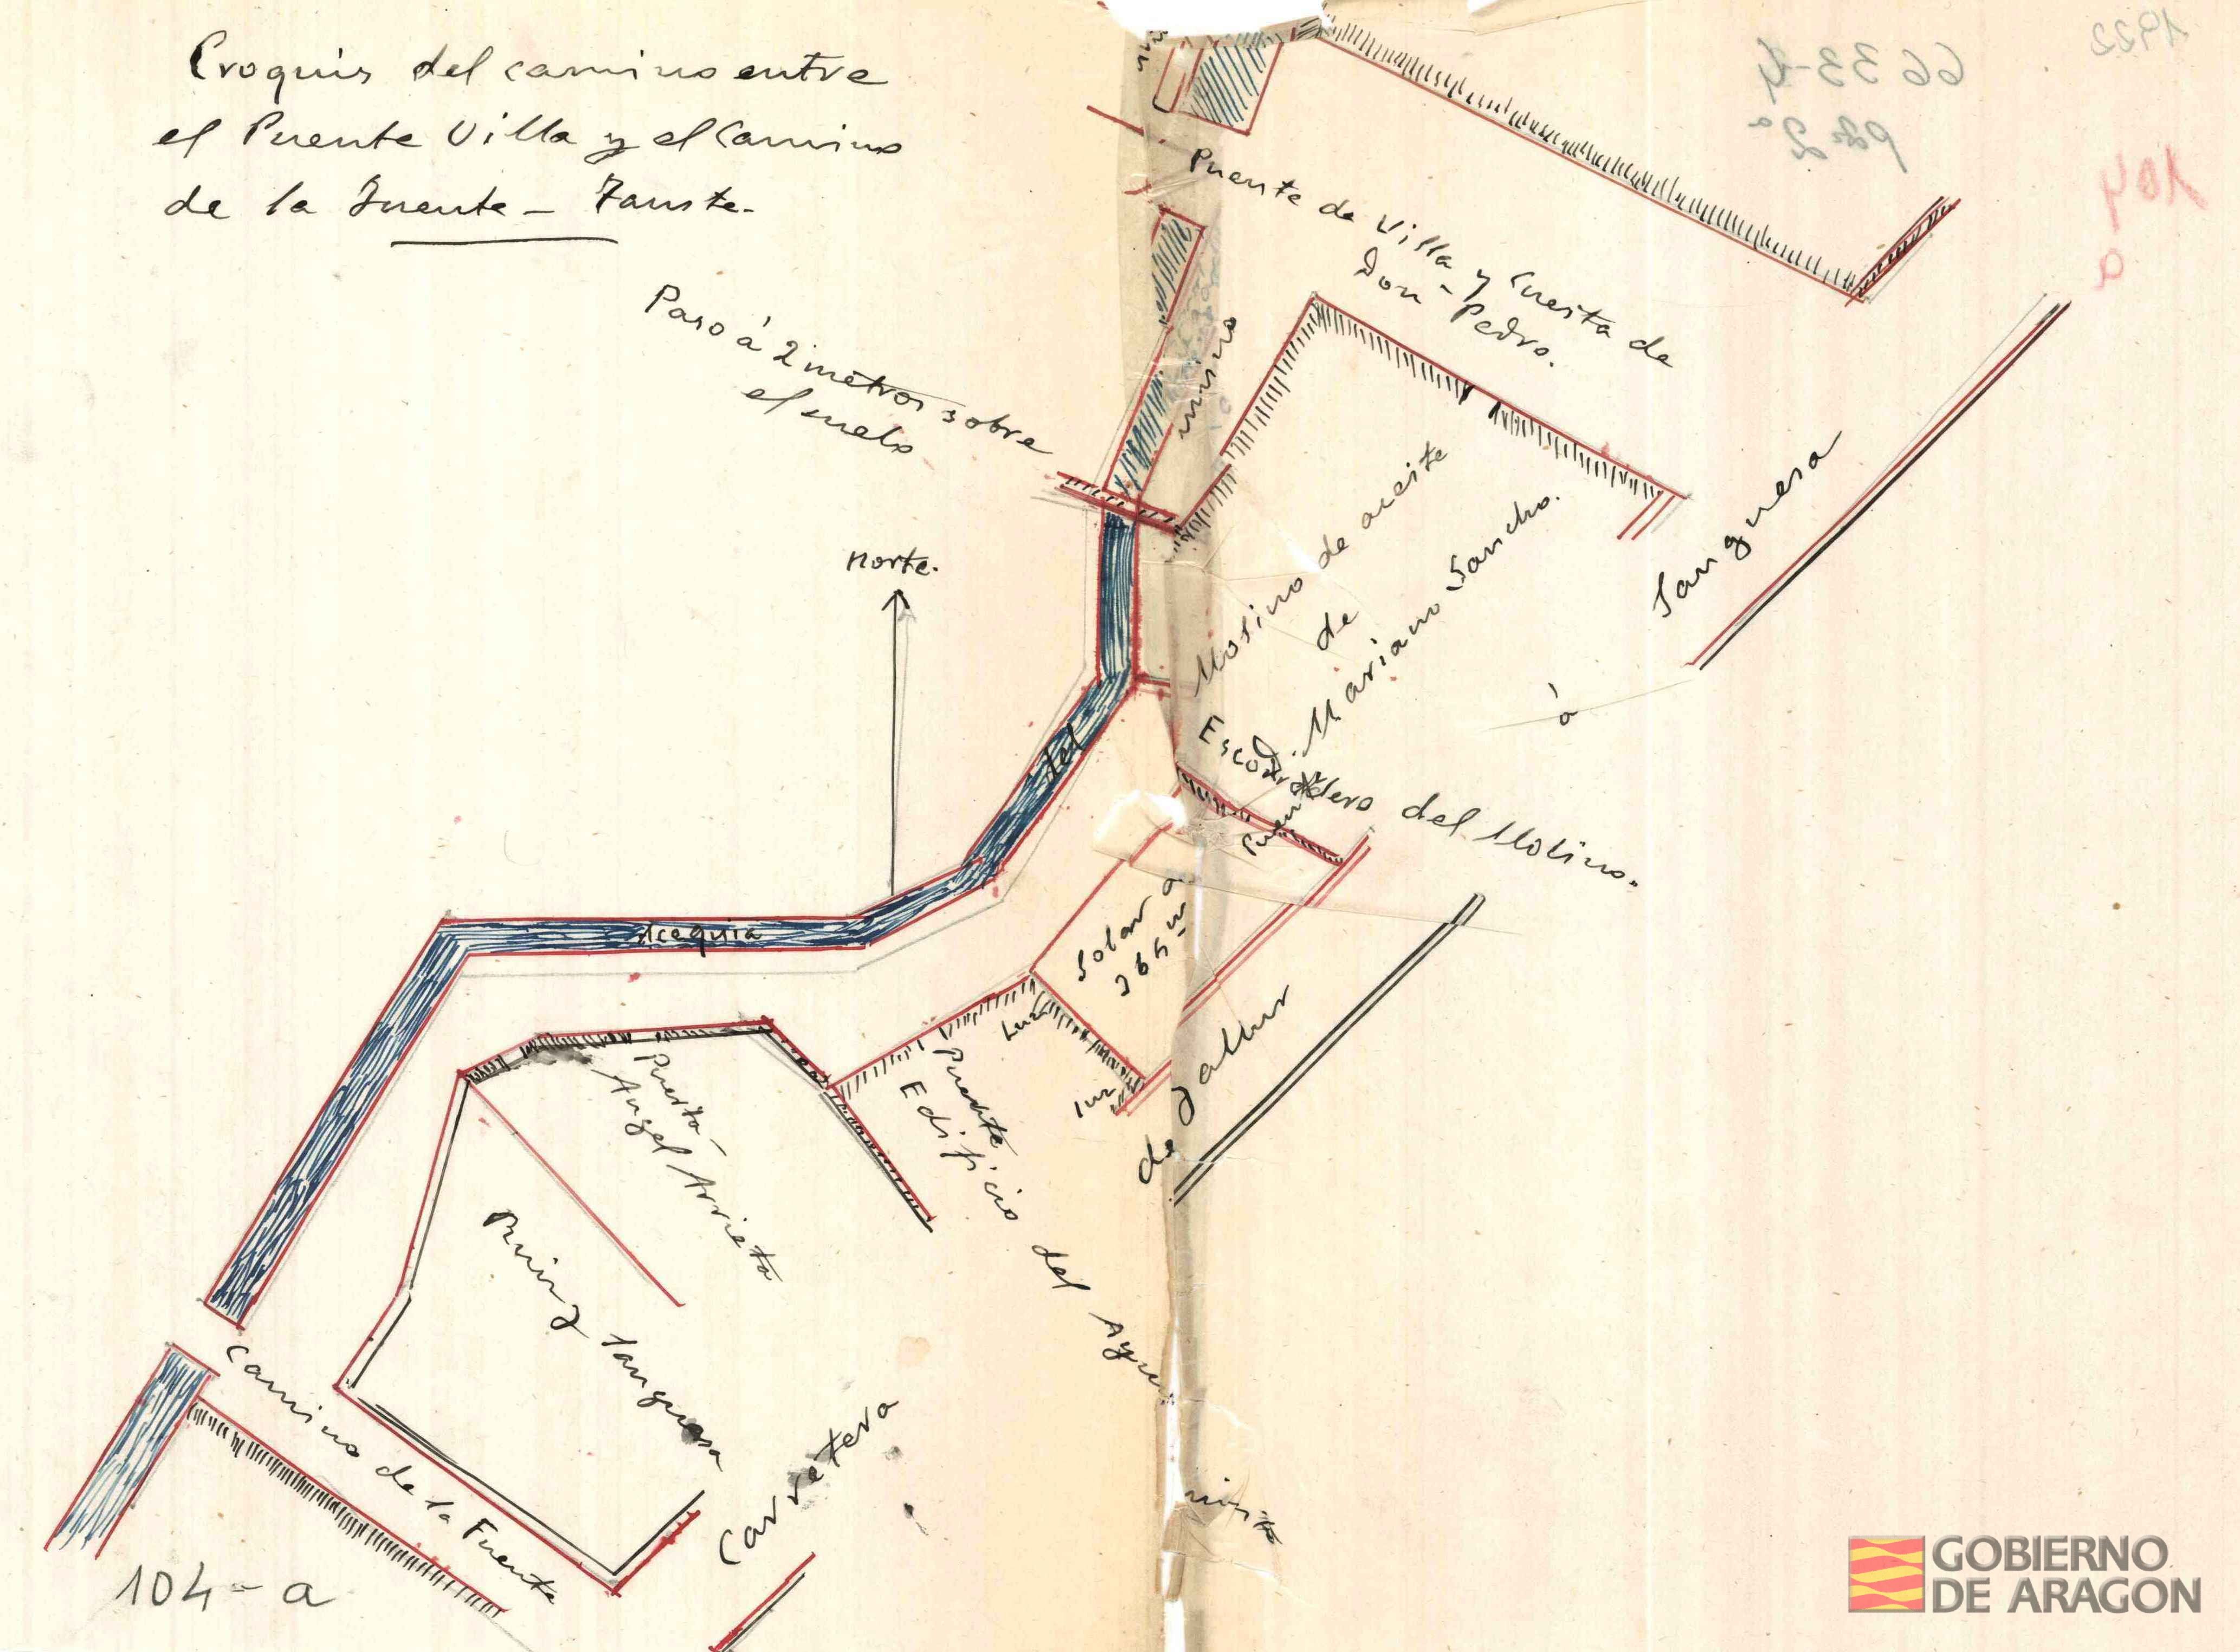 Croquis del camino entre
el Puente Villa y el Camino
de la Fuente - Tauste.
Paso á 2 metros sobre
el suelo
norte.
Puente de Villa y Cuesta de
Don - Pedro.
Molino de aceite
de
D. Mariano Sancho.
Sanguesa
á
Escorredero del Molino.
del
Acequia
Solar a
Luz
luz
de Gallur
Puente
Edificio del Ayun
miento
Puerta -
Angel Arrieta
Ruinz Sanguesa
Carretera
Camino de la Fuente
104 - a
1922
6633-4
104
a
GOBIERNO
DE ARAGON